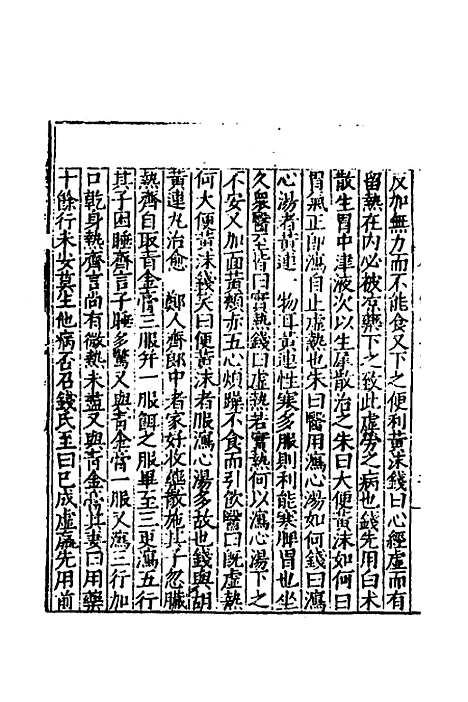 反加無力而不能食又下之便利黃沫錢曰心經虛而有
留熱在内必被凉藥下之致此虛勞之病也錢先用白术
散生胃中津液次以生犀散治之朱曰大便黃沫如何曰
胃氣正即瀉自止虛熱也朱曰醫用瀉心湯如何錢曰瀉
心湯者黃連一物耳黃連性寒多服則利能寒脾胃也坐
久衆醫至皆曰實熱錢曰虛熱若實熱何以瀉心湯下之
不安又加面黃頰赤五心煩躁不食而引飲醫曰既虛熱
何大便黃沫錢笑曰便黃沫者服瀉心湯多故也錢與胡
黃連丸治愈 鄭人齊郎中者家好收藥散施其子忽臟
熱齊自取青金膏三服并一服餌之服畢至三更瀉五行
其子困睡齊言子睡多驚又與青金膏一服又瀉三行加
口乾身熱齊言尚有微熱未盡又與青金膏其妻曰用藥
十餘行未安莫生他病否召錢氏至曰已成虛羸先用前